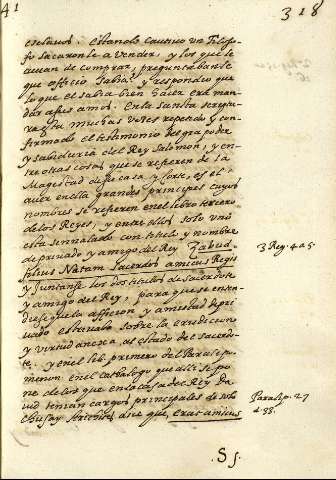 41
318
esclavos. estando cautivo un Filoso-
fo sacaronle a vender, y los que se
avian de comprar, preguntabanle
que officio sabia? y respondió que
lo que el sabia bien hacer era man-
dar a sus amos. En la santa escritu-
ra esta muchas veces repetido y con-
firmado el testimonio del gran poder
y sabiduria del Rey Salomon, y en-
tre otras cosas que se refieren de la
Magestad de su casa, y Corte, es el
aver en ella grandes principes cuyos
nombres se refieren en el libro tercero
de los Reyes, y entre ellos solo uno
esta sennalado con titulo y nombre
de privado y amigo del Rey Zabud
filius Natam sacerdos amicus Regis
y Juntanse los dos titulos de sacerdote
y amigo del Rey, para que se enten-
diese que la afficion y amistad de pri-
vado estrivaba sobre la erudicion
y virtud aneja al estado del sacerdo-
te. y en el lib. primero del Paralipo-
menon en el cathalogo que alli se po-
ne de los que en la casa del Rey Da-
vid tenian cargos principales de solo
Chusay Arichites dice que, erat amicus
3 Reg. 4. a 5
Paralip. 27
4. 33.
S 5.